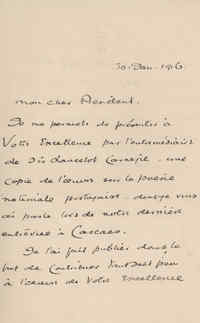 30 Jan. 1916
Mon cher Président.
Je me permets de présenter à
Votre Excellence par l'intermédiaire
de Sir Lancelot Carnegie, une
copie de l'œuvre sur la poésie
nationale portugaise, dont je vous
ai parlé lors de notre dernière
entrevue à Cascaes.
Je l'ai fait publier dans le
but de contribuer tant soit peu
à l'œuvre de Votre Excellence